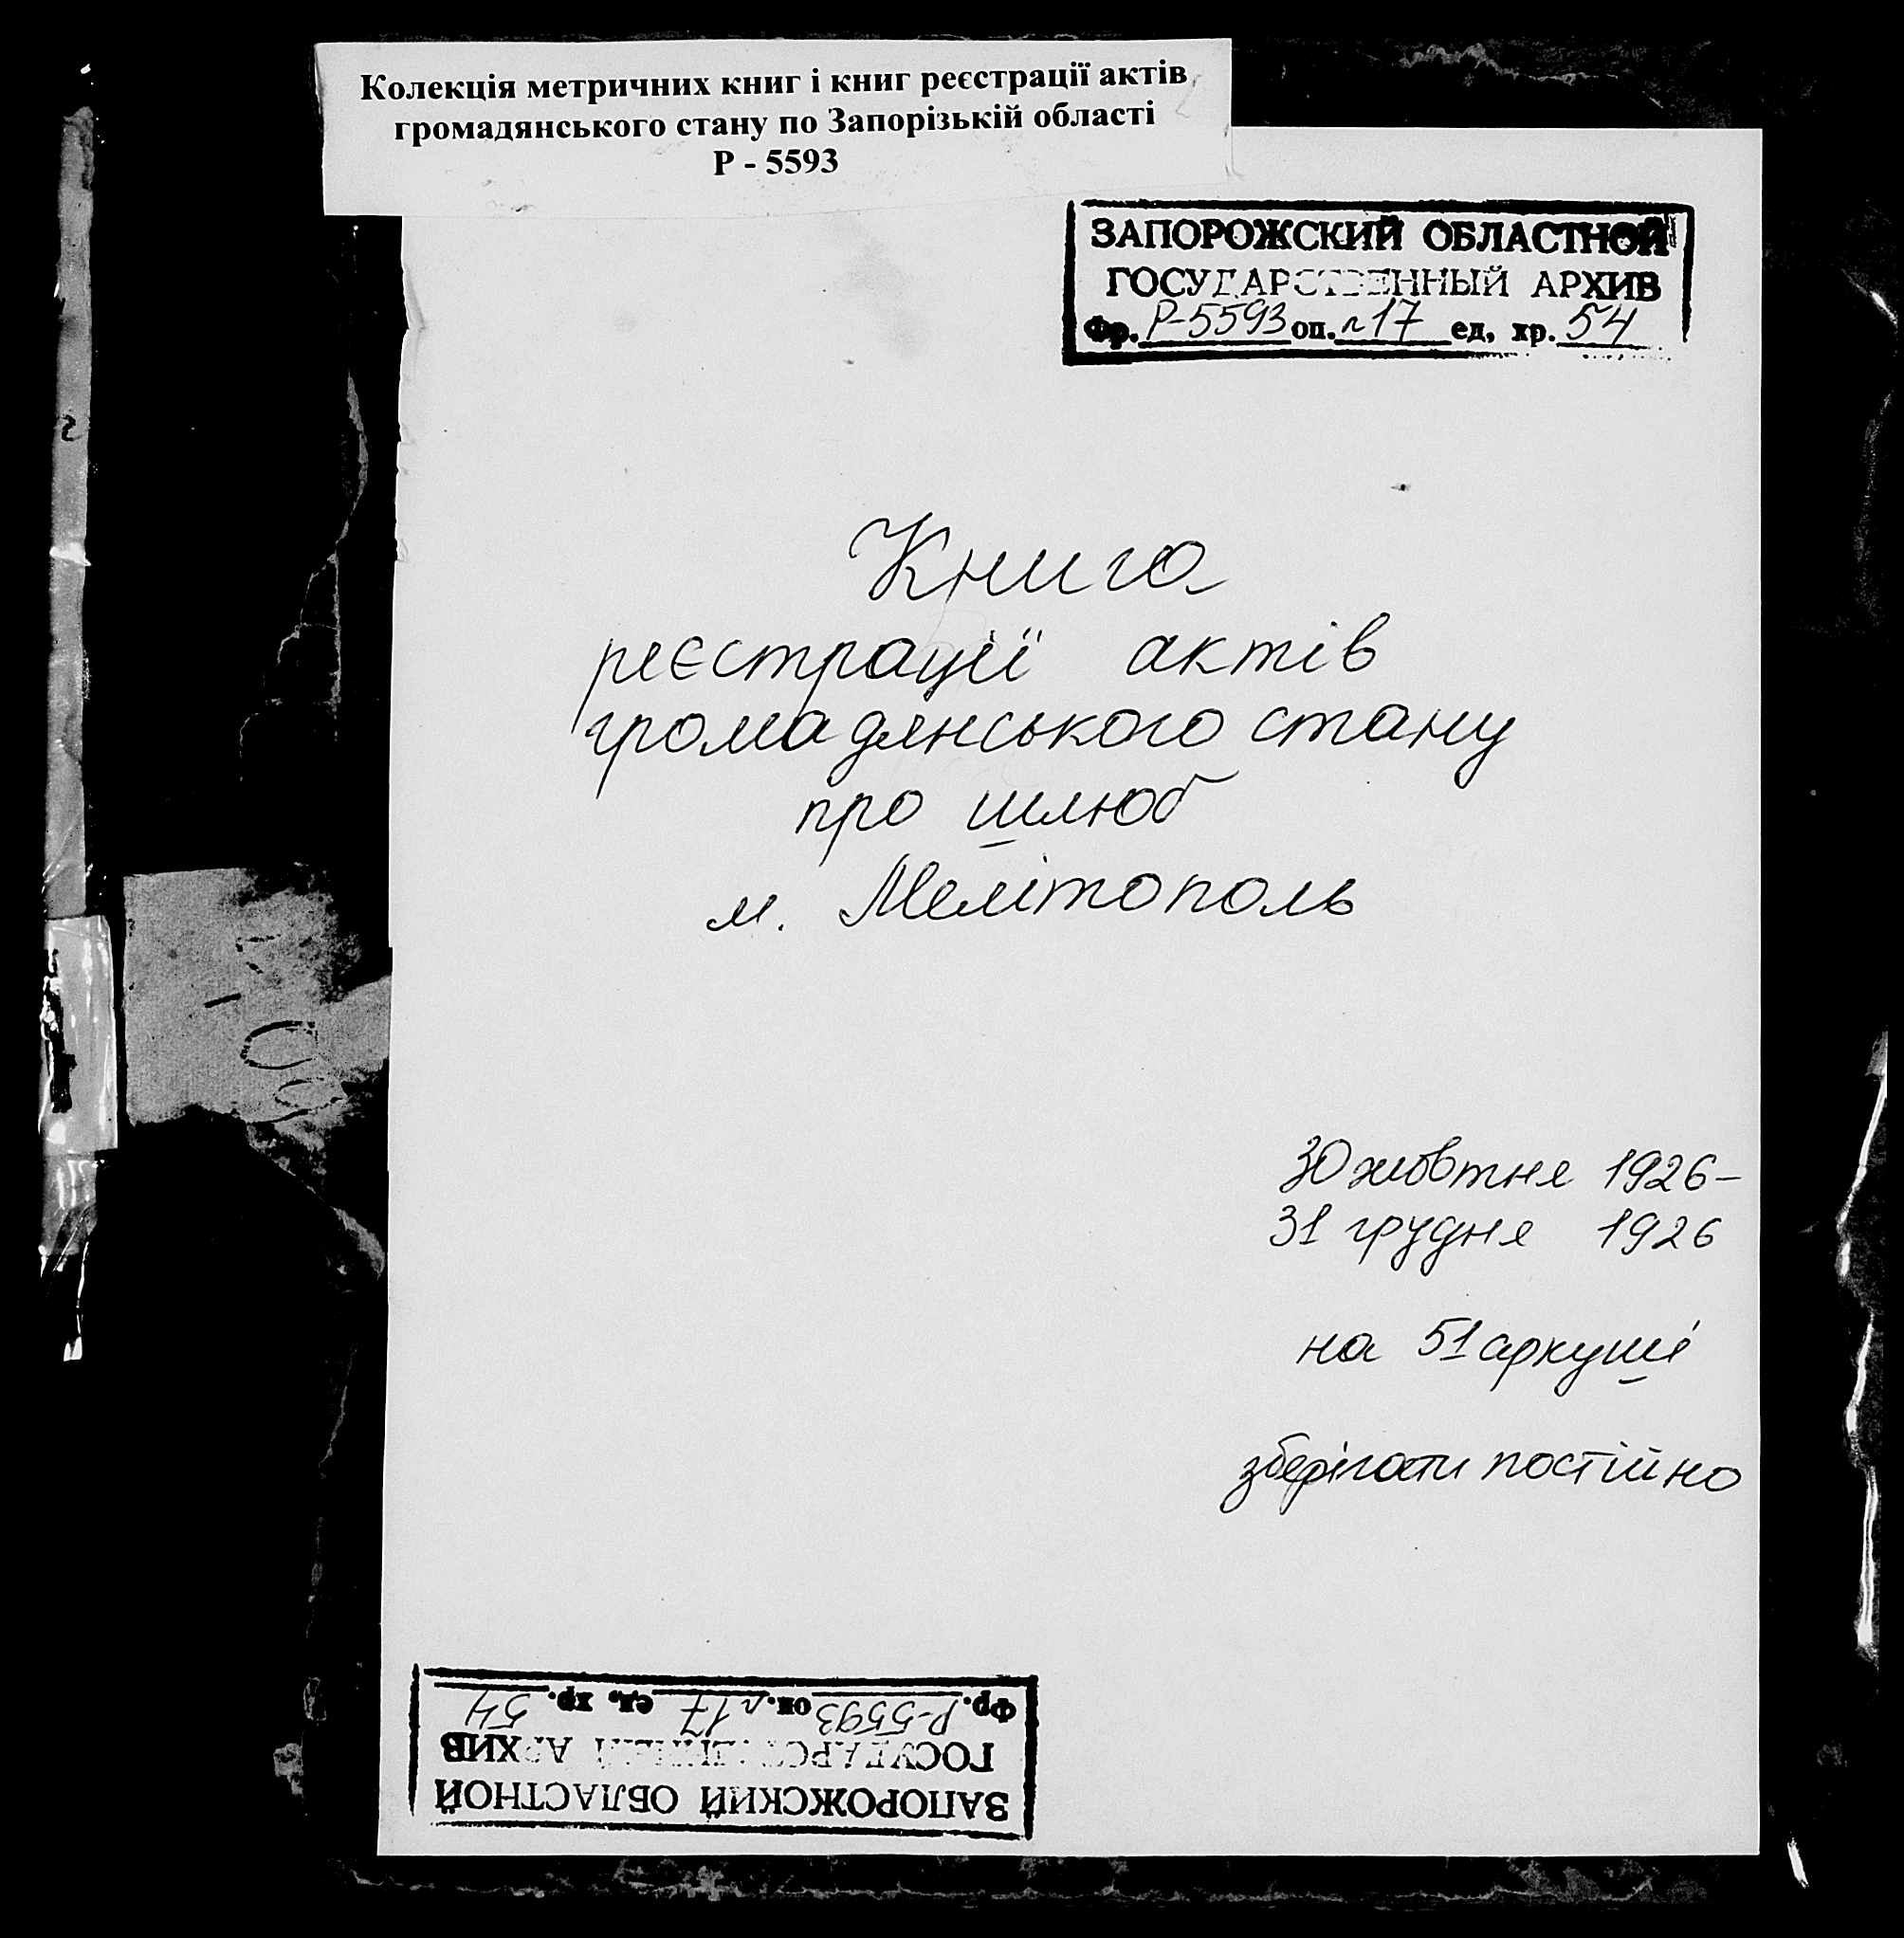 Колекція метричних книг і книг реєстрації актів
громадянського стану по Запорізькій області
Р - 5593
ЗАПОРОЖСКИЙ ОБЛАСТНОЙ
ГОСУДАРСТВЕННЫЙ АРХИВ
Фр. Р-5593 оп. л17 ед. хр. 54
Книга
реєстрації актів
громадянського стану
про шлюб
м. Мелітополь
30 жовтня 1926-
31 грудня 1926
на 51 аркуші
зберігати постійно
ЗАПОРОЖСКИЙ ОБЛАСТНОЙ
ГОСУДАРСТВЕННЫЙ АРХИВ
Фр. Р-5593 оп. л17 ед. хр. 54